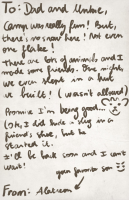 To: Dad and Unkie,
Camp was really fun! But,
there's no snow here! Not even
one flake!
There are lots of animals and I
made some friends. One night
we even sleeps in a hut
we built! (wasn't allowed)
Promise I'm being good...
(Ok, I did hide a slug in a
friends shoe, but he
started it.
I'll be back soon and I can't
wait!
your favorite son
From: